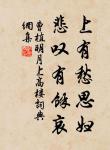 上有愁思妇
悲叹有余哀
曹植明月上高楼词典
网集